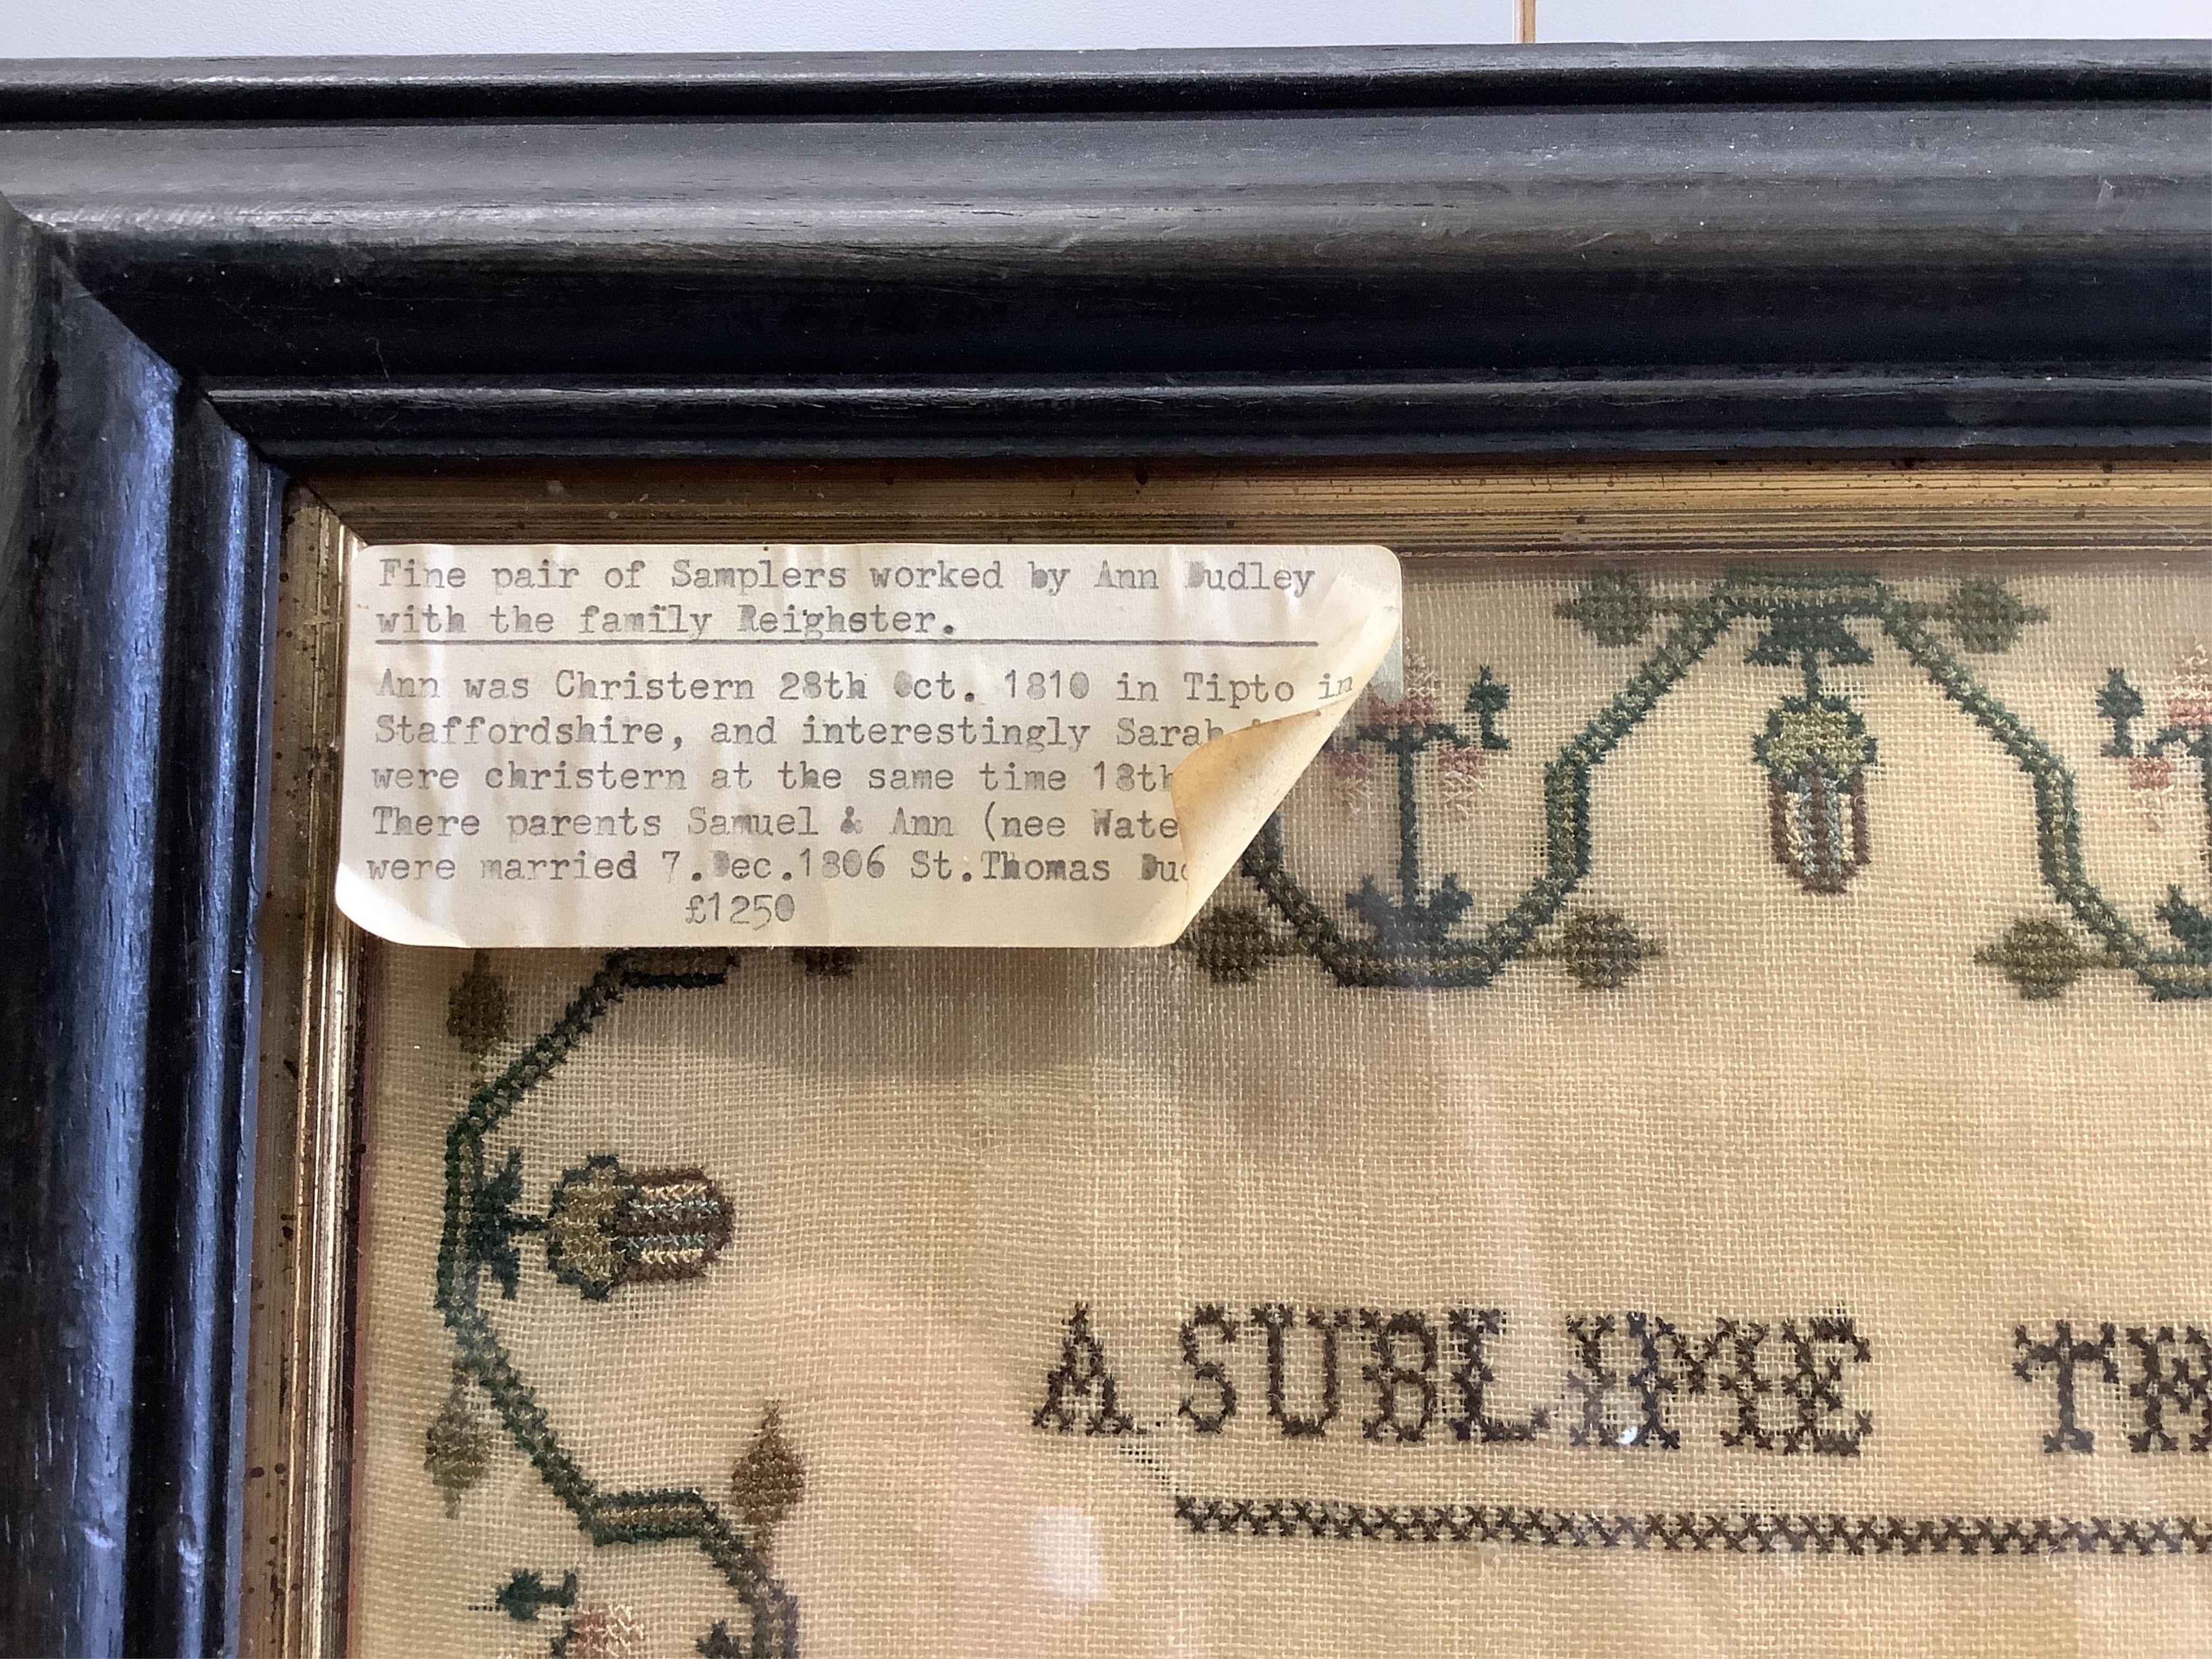 Fine pair of Samplers worked by Ann Dudley
with the family Reighster.
Ann was Christern 28th Oct. 1810 in Tipto in
Staffordshire, and interestingly Sarah
were christern at the same time 18th
There parents Samuel & Ann (nee Wate
were married 7.Dec.1806 St.Thomas Du
£1250
A SUBLIME